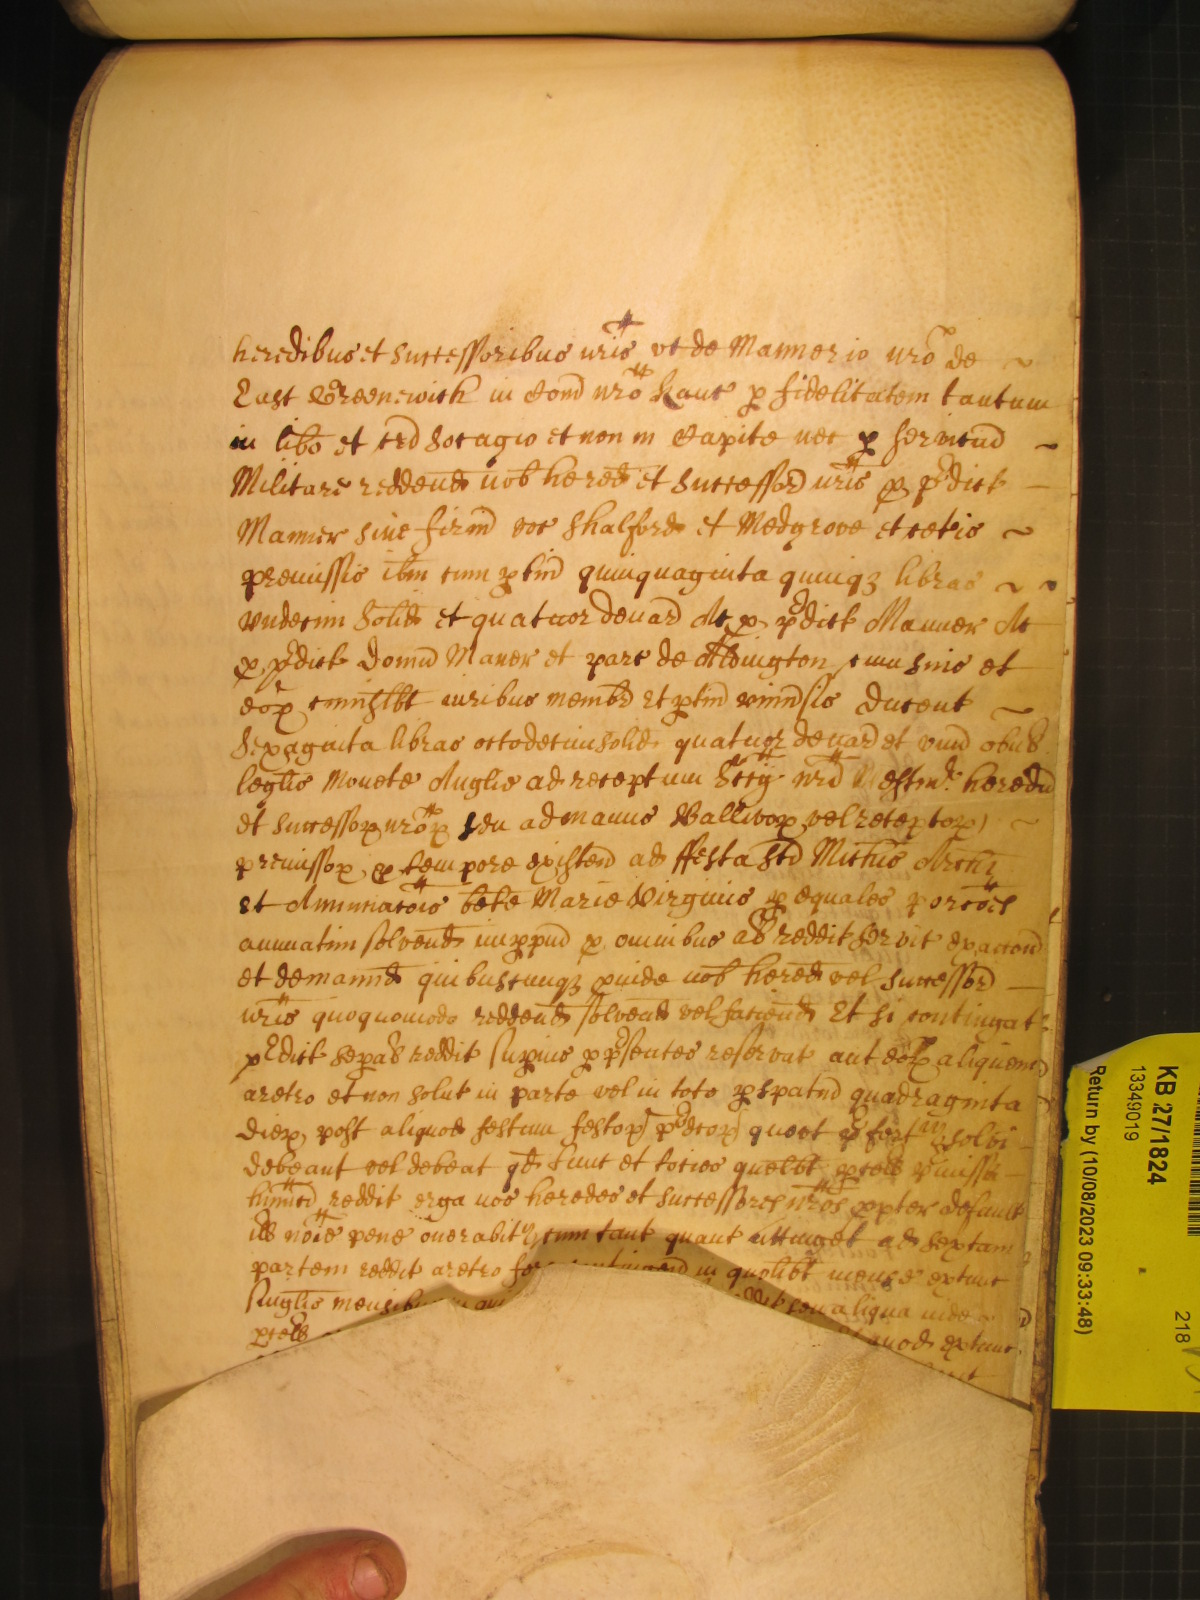 heredibus et Successoribus nr̄is vt de Mannerio nr̄o de
East Greenewich in Com̄ nr̄o Kanc̄ ꝑ fidelitatem tantum
in libo et cōi Socagio et non in Capite nec ꝑ servitiū
Militare reddend nob hered et Successor̄ nr̄is ꝓ pͬdict
Manner sive firm̄ voc Shalford et Wedgrove et cet̄is
premissis ib̄m cum ꝑtin̄ quinquaginta quinqꝫ libras
vndecim Solid et quatuor denar̄ Ac ꝓ pͬdict Manner Ac
ꝓ pͬdict Domu Maner et parc de cum suis et
eoꝝ iuribus membr̄ et ꝑtin̄ vniu̅sis Ducent
Sexaginta libras octodecim solid quatuor denar et vnū obul
legl̄is Monete Anglie ad receptum Scc̄ij nr̄i Westm̄ hered
et Successoꝝ nr̄oꝝ Seu ad manus Ballivoꝝ vel receptoꝝ
premissoꝝ ꝓ tempore existen̄ ad ffesta Sc̄i Mich̄is Arch̄i
et Annunciac̄ois be̅te Marie Virginis ꝑ equales porc̄oes
annuatim solvend imꝑpm̄ ꝓ omnibus al̄ reddit Servic exaccon̄
et demannd quibuscunqꝫ ꝓinde nob hered vel successor̄
nr̄is quoquomodo reddend solvend vel faciend Et si contingat
pͬdict sep̄al reddit suꝑius ꝑ pͬsentes reservat aut eoꝝ aliquem
aretro et non solut in parte vel in toto ꝑ spatiū quadraginta
dieꝝ post aliquod festum festoꝝ pͬdcoꝝ quo vt pͬfert solvi
debeant vel debeat qd̄ tunc et tocies quel̄t ꝑcell pͬmissꝝ
reddit erga nos heredes et successores nr̄os ꝓpter default
ill no̅ie pene onerabitͬ cum tant quant attinget ad septam
partem reddit aretro in quolibt mense extunc
Singlis mensibus seu aliqua inde
ꝑcell quod extunc
KB 27/1824
13349019
Return by (10/08/2023 09:33:48)
218